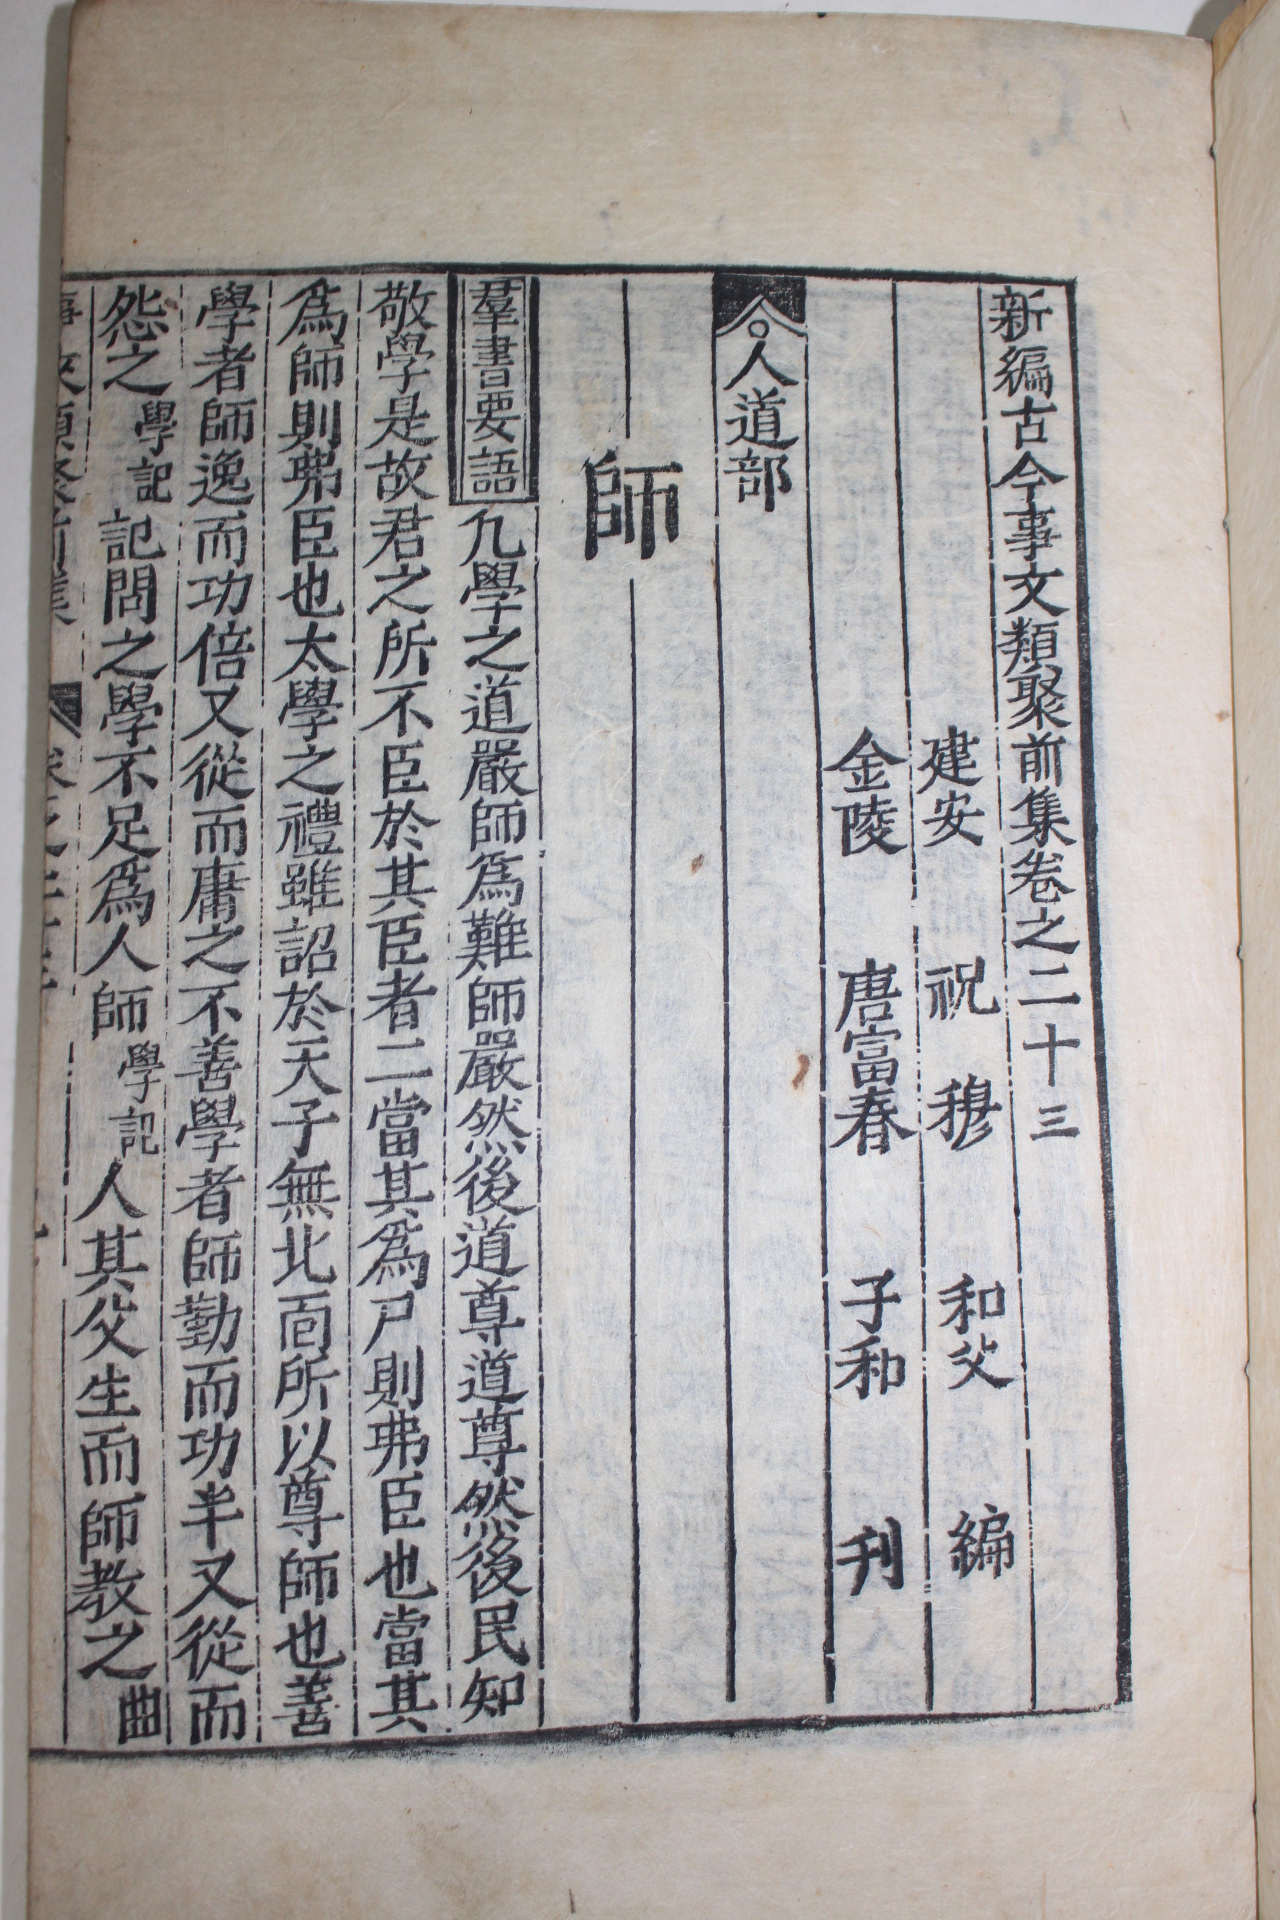 新編古今事文類聚前集卷之二十三
建安 祝穆 和父 編
金陵 唐富春 子和 刊
人道部
師
羣書要語 凡學之道嚴師爲難師嚴然後道尊道尊然後民知
敬學是故君之所不臣於其臣者二當其爲尸則弗臣也當其
爲師則弗臣也太學之禮雖詔於天子無北面所以尊師也善
學者師逸而功倍又從而庸之不善學者師勤而功半又從而
怨之學記記問之學不足爲人師學記人其父生而師教之曲